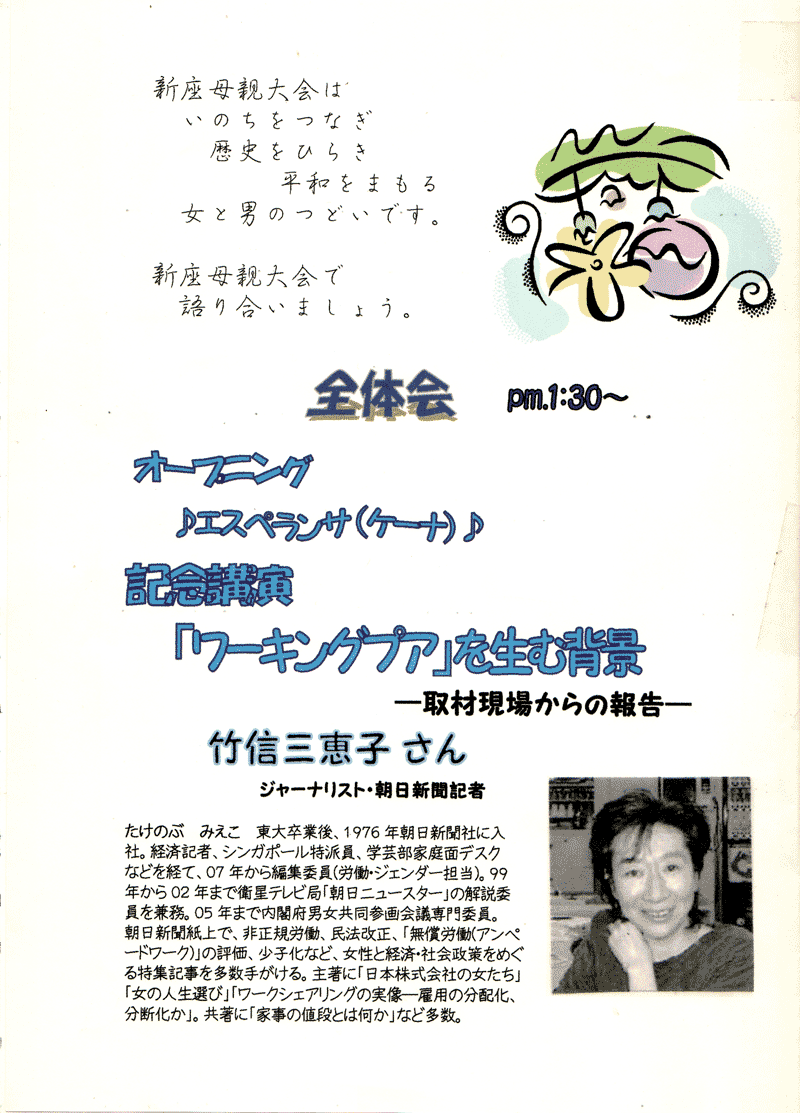 新座母親大会は
いのちをつなぎ
歴史をひらき
平和をまもる
女と男のつどいです。
新座母親大会で
語り合いましょう。
全体会 pm.1:30～
オープニング
♪エスペランサ(ケーナ)♪
記念講演
「ワーキングプア」を生む背景
―取材現場からの報告―
竹信三恵子 さん
ジャーナリスト・朝日新聞記者
たけのぶ みえこ 東大卒業後、1976年朝日新聞社に入
社。経済記者、シンガポール特派員、学芸部家庭面デスク
などを経て、07年から編集委員(労働・ジェンダー担当)。99
年から02年まで衛星テレビ局「朝日ニュースター」の解説委
員を兼務。05年まで内閣府男女共同参画会議専門委員。
朝日新聞紙上で、非正規労働、民法改正、「無償労働(アンペ
ードワーク)」の評価、少子化など、女性と経済・社会政策をめぐ
る特集記事を多数手がける。主著に「日本株式会社の女たち」
「女の人生選び」「ワークシェアリングの実像―雇用の分配化、
分断化か」。共著に「家事の値段とは何か」など多数。